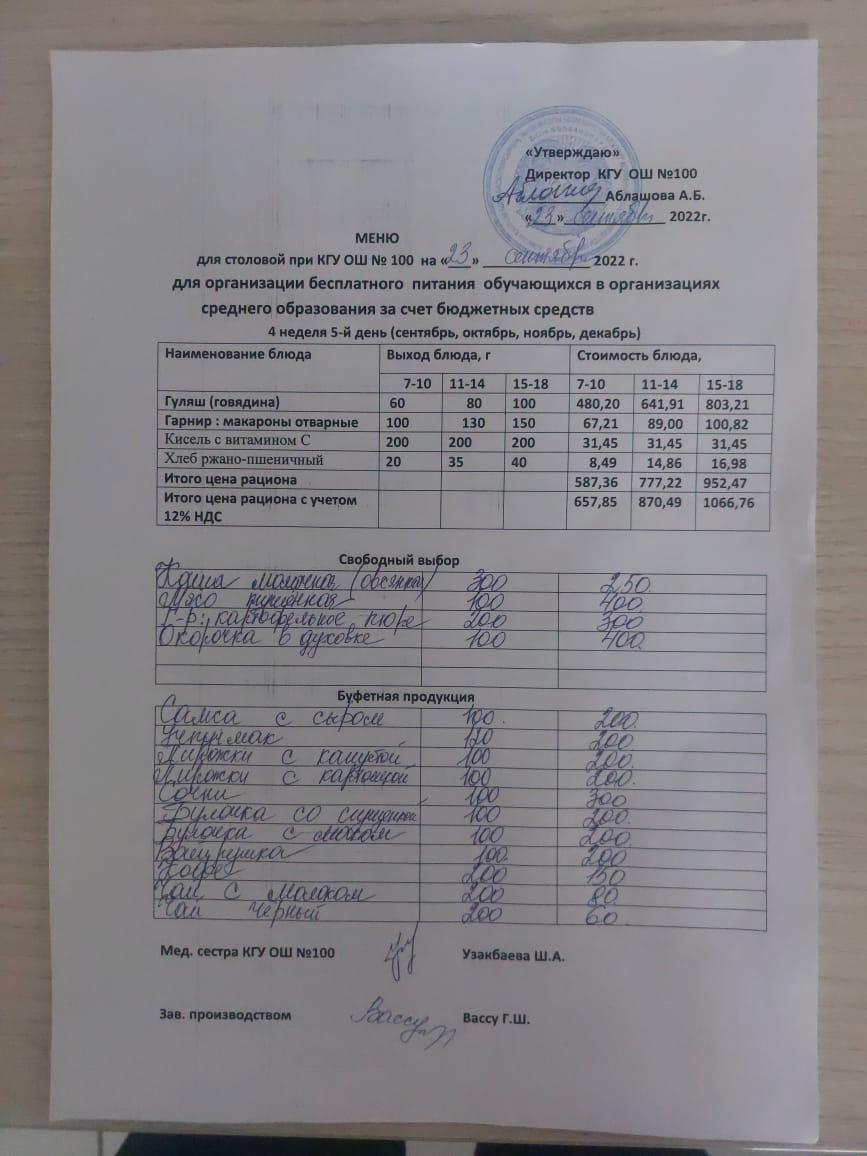 «Утверждаю»
Директор КГУ ОШ №100
Аблашова А.Б.
«23» сентябрь 2022г.
МЕНЮ
для столовой при КГУ ОШ № 100 на «23» сентябрь 2022 г.
для организации бесплатного питания обучающихся в организациях
среднего образования за счет бюджетных средств
4 неделя 5-й день (сентябрь, октябрь, ноябрь, декабрь)
Наименование блюда Выход блюда, г Стоимость блюда,
7-10 11-14 15-18 7-10 11-14 15-18
Гуляш (говядина) 60 80 100 480,20 641,91 803,21
Гарнир : макароны отварные 100 130 150 67,21 89,00 100,82
Кисель с витамином С 200 200 200 31,45 31,45 31,45
Хлеб ржано-пшеничный 20 35 40 8,49 14,86 16,98
Итого цена рациона 587,36 777,22 952,47
Итого цена рациона с учетом 657,85 870,49 1066,76
12% НДС
Свободный выбор
Каша молочная (овсянка) 300 250
Мясо 100 400
Г-р: картофельное пюре 200 300
Окорочка в духовке 100 400
Буфетная продукция
Самса с сыром 100 200
Учпучмак 120 200
Пирожки с капустой 100 200
Пирожки с картошкой 100 200
Сочни 100 300
Булочка со 100 200
Булочка с маком 100 200
Ватрушка 100 200
Кофе 200 150
Чай с молоком 200 80
Чай черный 200 60
Мед. сестра КГУ ОШ №100 Узакбаева Ш.А.
Зав. производством Вассу Г.Ш.